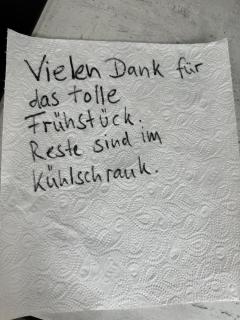 Vielen Dank für
das tolle
Frühstück.
Reste sind im
Kühlschrank.